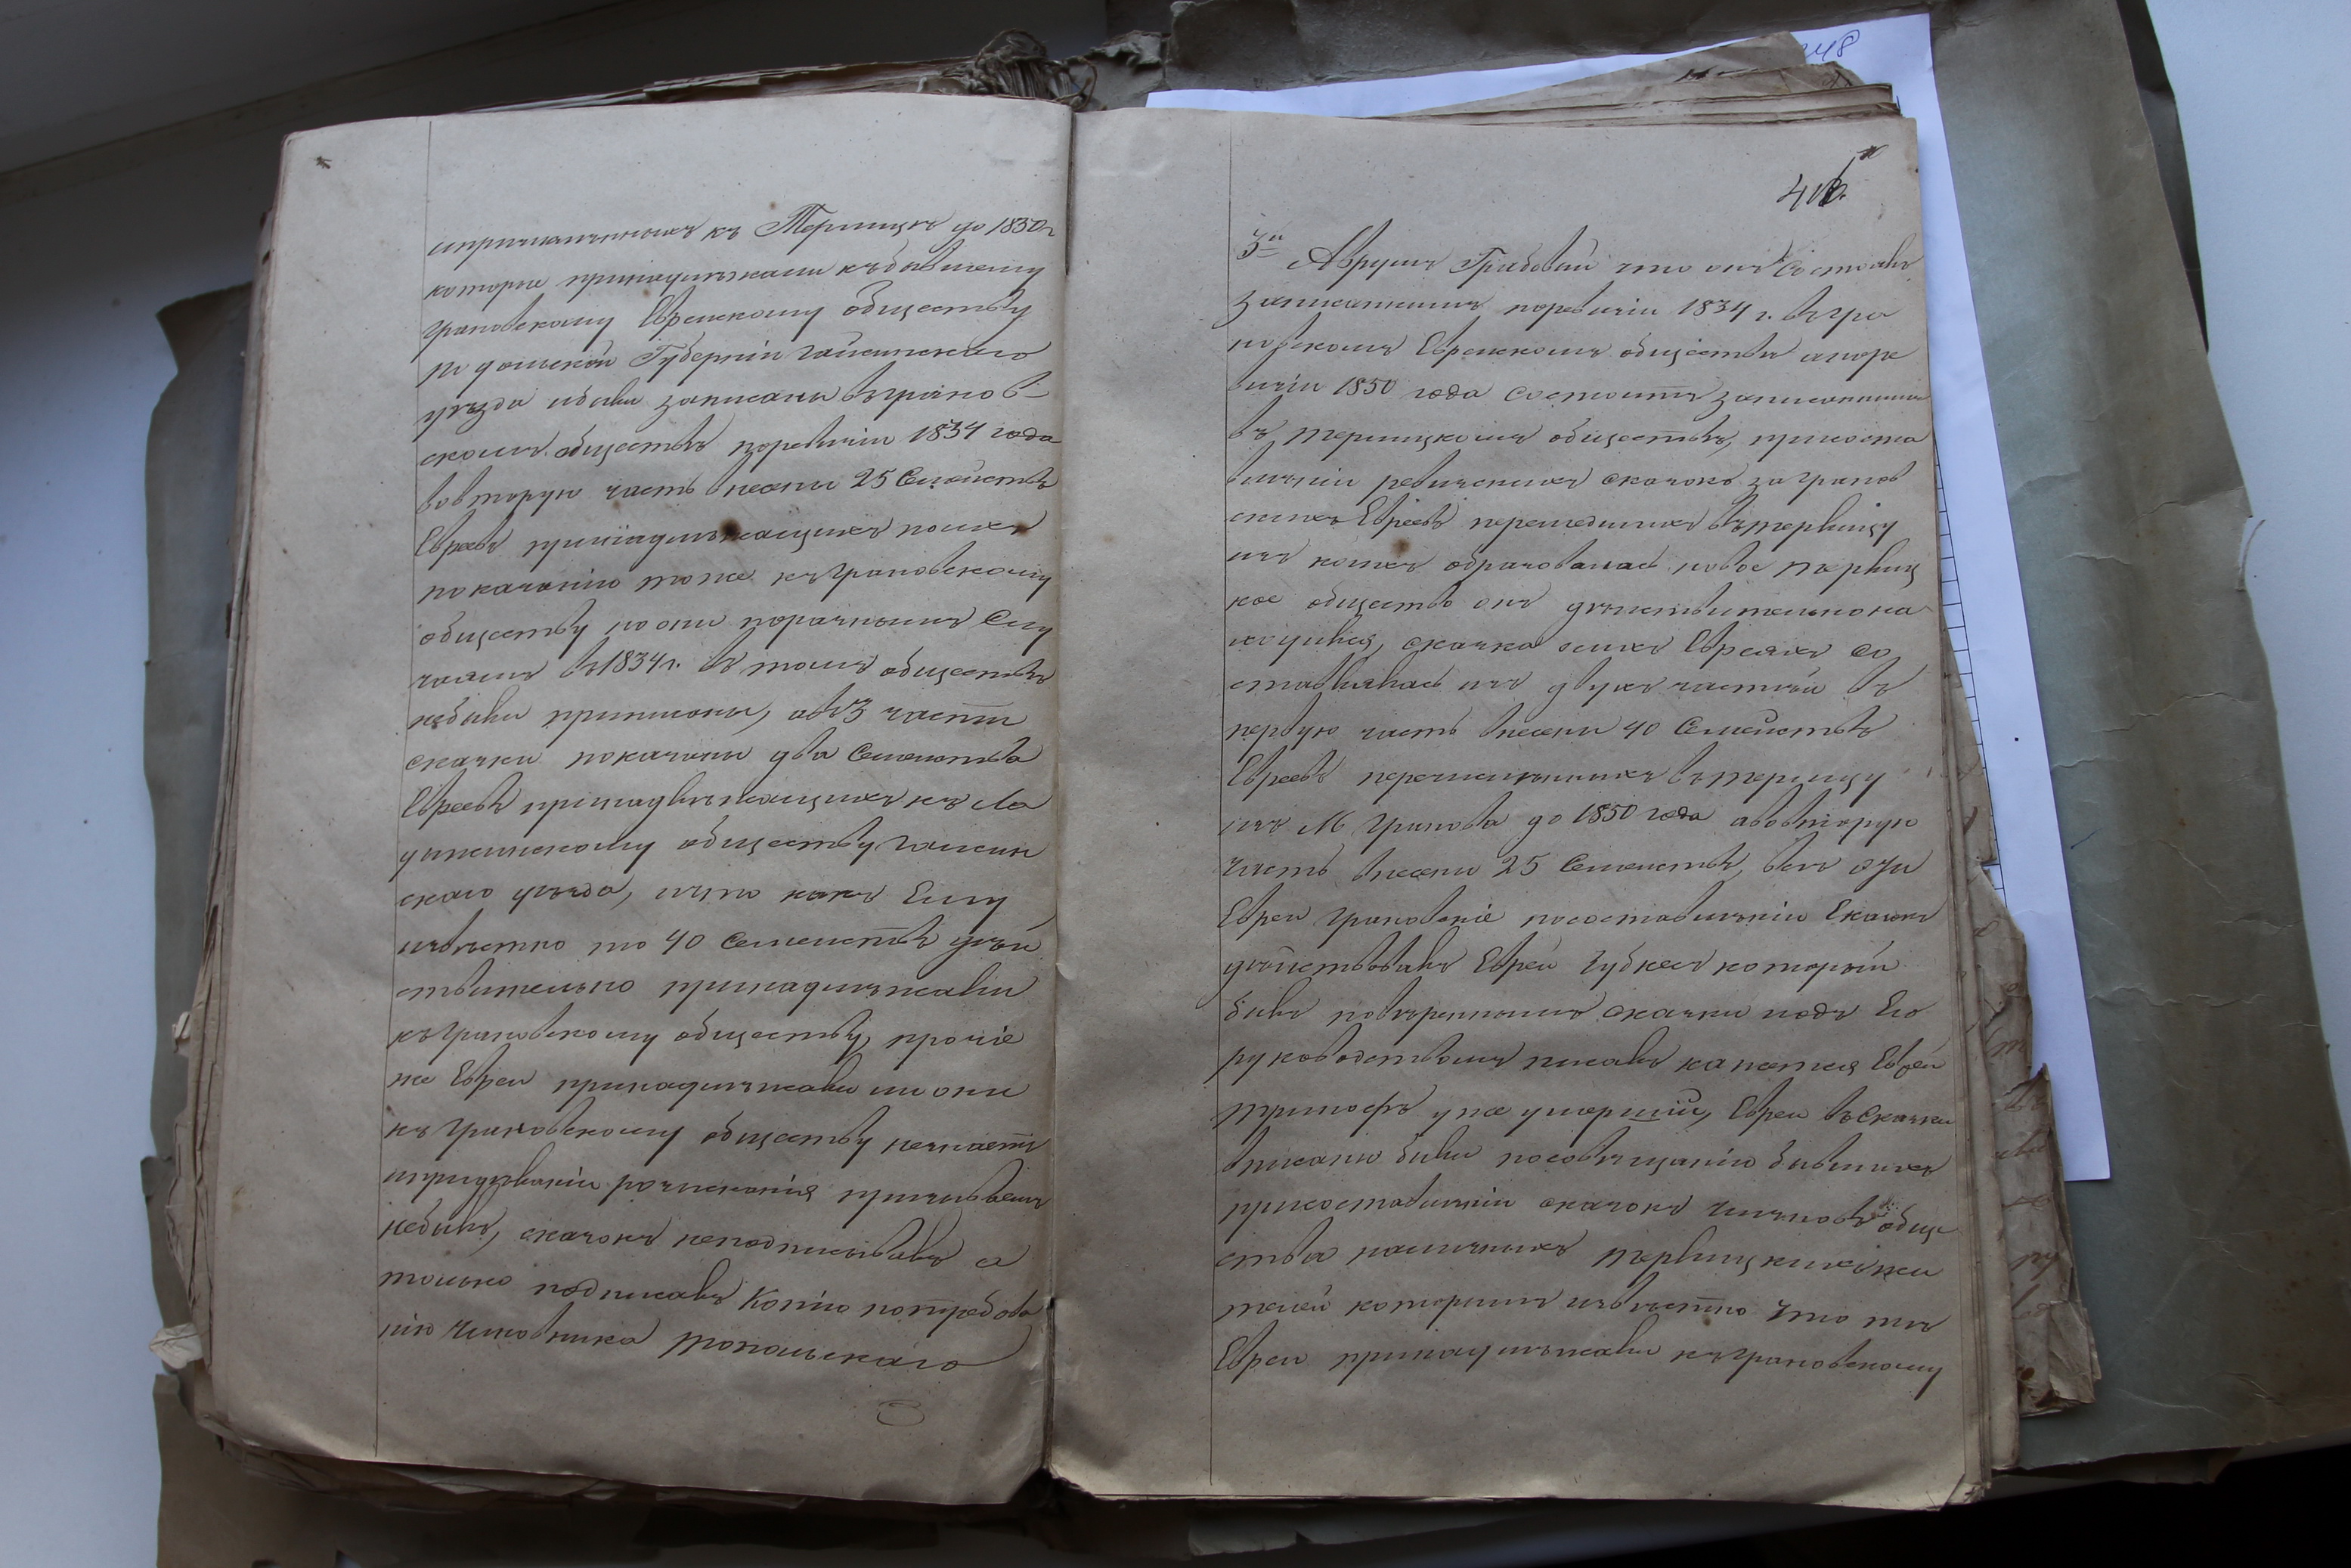 и причисленныхъ къ Терлицѣ до 1850 г
которые принадлежали къ бывшему
грановскому Еврейскому обществу
подольской Губерніи гайсинскаго
уѣзда и были записаны въ гранов-
скомъ обществѣ по ревизіи 1834 года
во вторую часть внесены 25 Семействъ
Евреевъ принадлежащихъ по ихъ
показанію тоже къ грановскому
обществу но они по разнымъ Слу
чаямъ въ 1834 г. въ томъ обществѣ
небыли приписаны, а въ 3 части
сказки показаны два Семейства
Евреевъ принадлежащихъ къ Ла
дыжинскому обществу гайсин
скаго уѣзда, и что какъ Ему
извѣстно то 40 Семействъ дѣй
ствительно принадлежали
къ грановскому обществу, прочіе
же Евреи принадлежали ли они
къ грановскому обществу незнаетъ
при дѣланіи розысканія
небылъ, сказокъ неподписывалъ а
только подписалъ Копію по требова
нію Чиновника Топольскаго
248
3й Аврумъ Грабовый что онъ Состоялъ
записаннымъ по ревизіи 1834 г. въ гра
новскомъ Еврейскомъ обществѣ а по ре
визіи 1850 года состоитъ записаннымъ
въ терлицкомъ обществѣ, при соста
вленіи ревизскихъ сказокъ за гранов
скихъ Евреевъ перешедшихъ въ терлицу
изъ коихъ образовалась новое терлиц
кое общество онъ дѣйствительно на
ходился, сказка о сихъ Евреяхъ со
ставлялась изъ двухъ частей въ
первую часть внесены 40 Семействъ
Евреевъ перечисленныхъ въ терлицу
изъ М гранова до 1850 года а во вторую
часть внесены 25 Семействъ, все эти
Евреи грановскіе по составленіи Сказокъ
дѣйствовалъ Еврей Губкесъ который
былъ повѣреннымъ сказки подъ Его
руководствомъ писалъ кажется Еврей
уже умершій, Евреи въ Сказки
вписаны были по совѣщанію бывшихъ
при составленіи сказокъ членовъ обще
ства наличныхъ терлицкихъ жи
телей которымъ извѣстно что тѣ
Евреи принадлежали къ грановскому